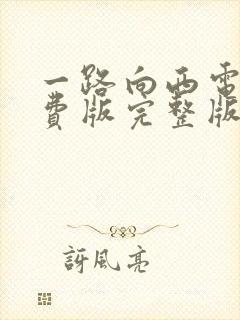 一路向西電
費版完整版
訝風亮